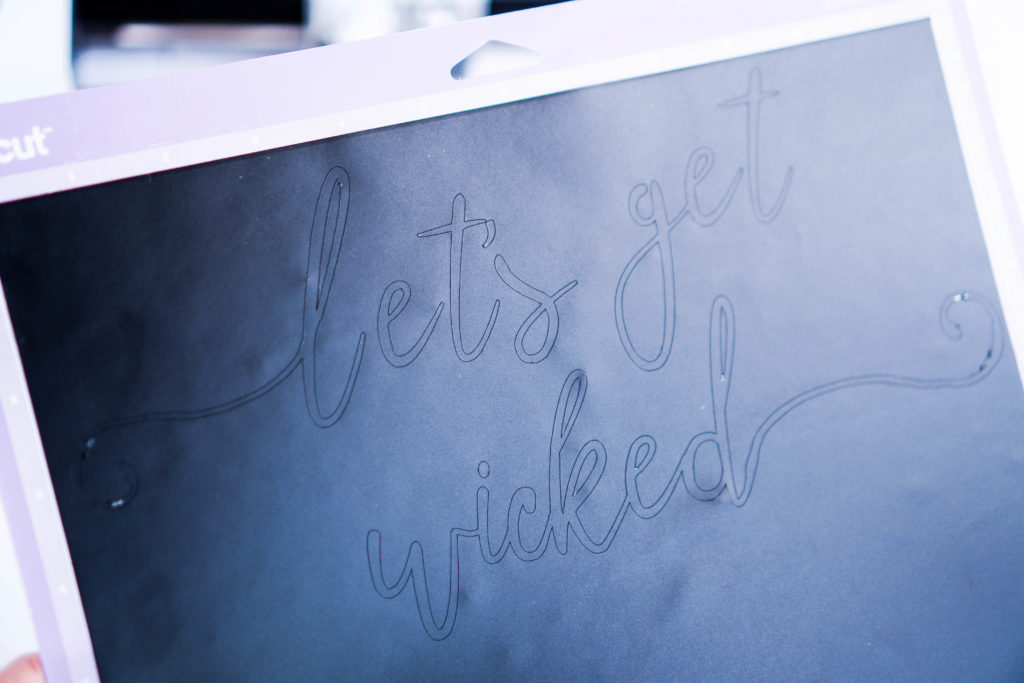 cut
let's get
wicked